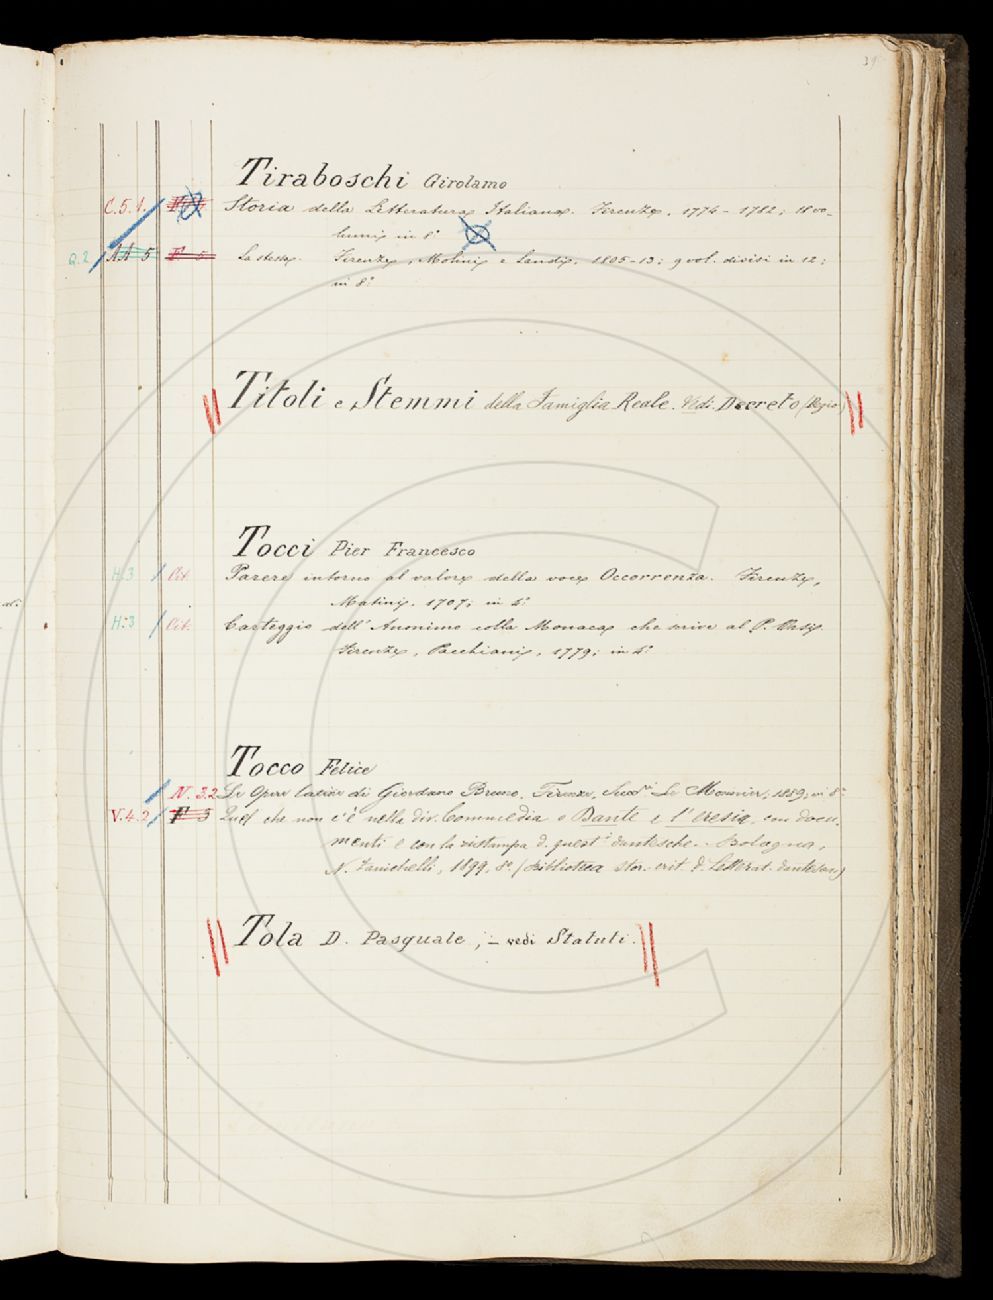 39
Tiraboschi Girolamo
C.5.1. Storia della Letteratura Italiana. Firenze, 1774-1782; 18 vo-
lumi in 8°
Q.2 AA 5 F 5 La stessa. Firenze, Molini e Landi, 1805-13; 9 vol. divisi in 12;
in 8°
Titoli e Stemmi della Famiglia Reale. Vedi Decreto (Regio)
Tocci Pier Francesco
H.3 Parere intorno al valore della voce Occorrenza. Firenze,
1707; in 4°
H.3 Carteggio dell'Anonimo colla Monaca che scrive al P.
Firenze, Pacchiani, 1779; in 4°
Tocco Felice
N. 3.2 Le Opere latine di Giordano Bruno. Firenze, Succ.ri Le Monnier, 1889; in 8°
V.4.2 F 3 Quel che non c'è nella div. Commedia o Dante e l'eresia, con docu-
menti e con la ristampa d. quest.i dantesche. Bologna,
N. Zanichelli, 1899, 8° (Biblioteca stor. crit. d. Letterat. dantesca)
Tola D. Pasquale, - vedi Statuti.